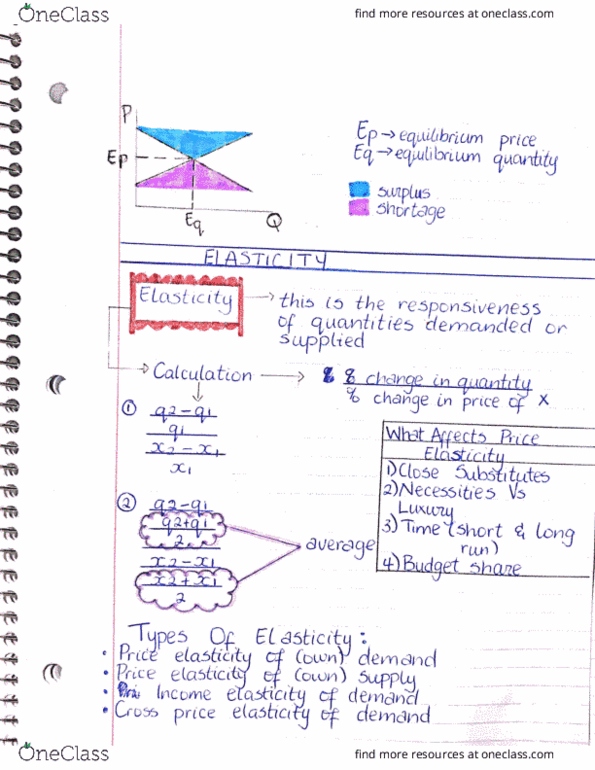 OneClass
find more resources at oneclass.com
P
Ep
Eq
Q
Ep → equilibrium price
Eq → equilibrium quantity
surplus
shortage
ELASTICITY
Elasticity → this is the responsiveness
of quantities demanded or
supplied
→ Calculation → % change in quantity
% change in price of X
① q2 - q1
q1
x2 - x1
x1
What Affects Price
Elasticity
1) Close Substitutes
2) Necessities Vs
Luxury
3) Time (short & long
run)
4) Budget share
② q2 - q1
q2+q1
2
x2 - x1
x2 + x1
2
average
Types Of Elasticity:
• Price elasticity of (own) demand
• Price elasticity of (own) supply
• Income elasticity of demand
• Cross price elasticity of demand
OneClass
find more resources at oneclass.com